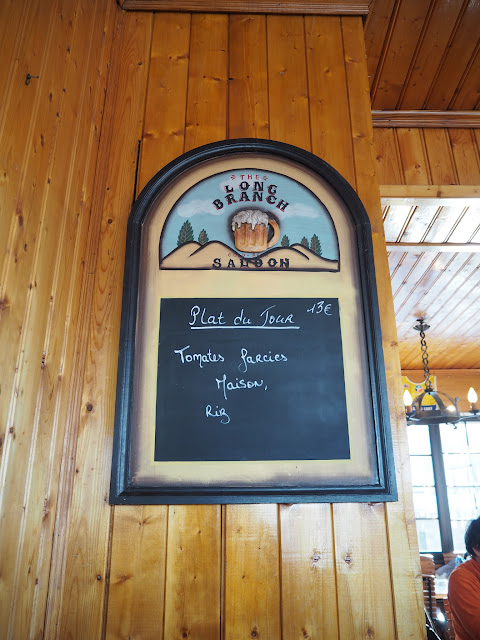 THE
LONG
BRANCH
SALOON
Plat du Jour 13€
Tomates farcies
Maison,
Riz